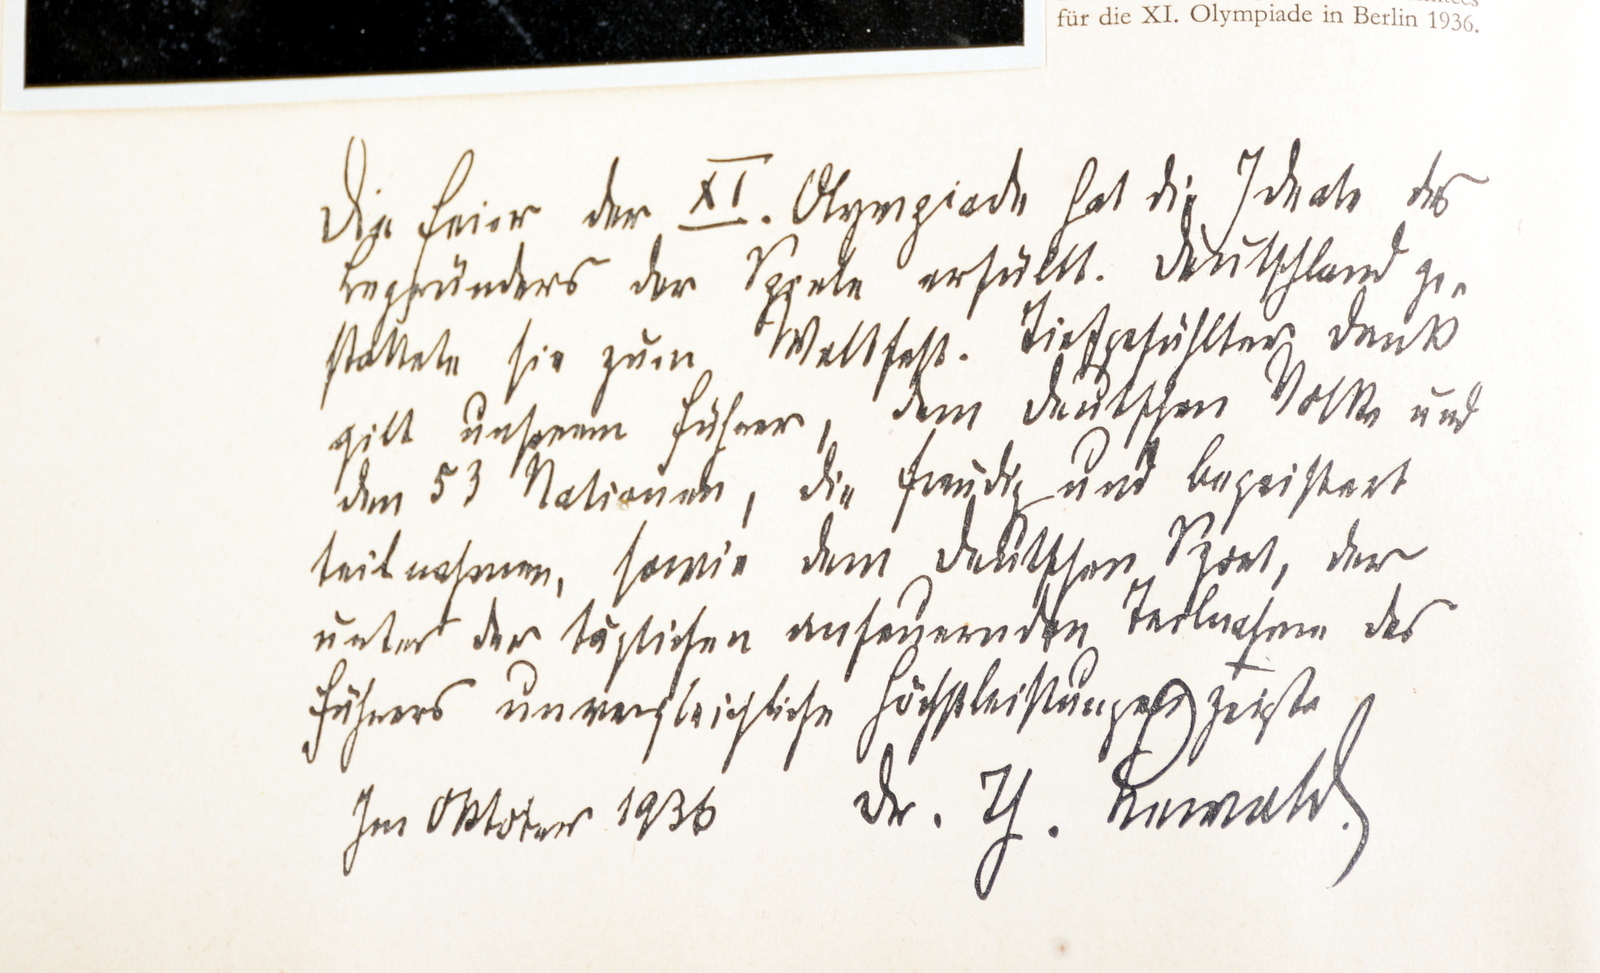 für die XI. Olympiade in Berlin 1936.
Die Feier der XI. Olympiade hat die Ideale des
Begründers der Spiele erfüllt. Deutschland ge-
staltete sie zum Weltfest. Tiefgefühlter Dank
gilt unserem Führer, dem deutschen Volke und
den 53 Nationen, die freudig und begeistert
teilnahmen, sowie dem deutschen Sport, der
unter der täglichen anfeuernden Teilnahme des
Führers unvergleichliche Höchstleistungen zeigte
Im Oktober 1936 Dr. Th. Lewald.